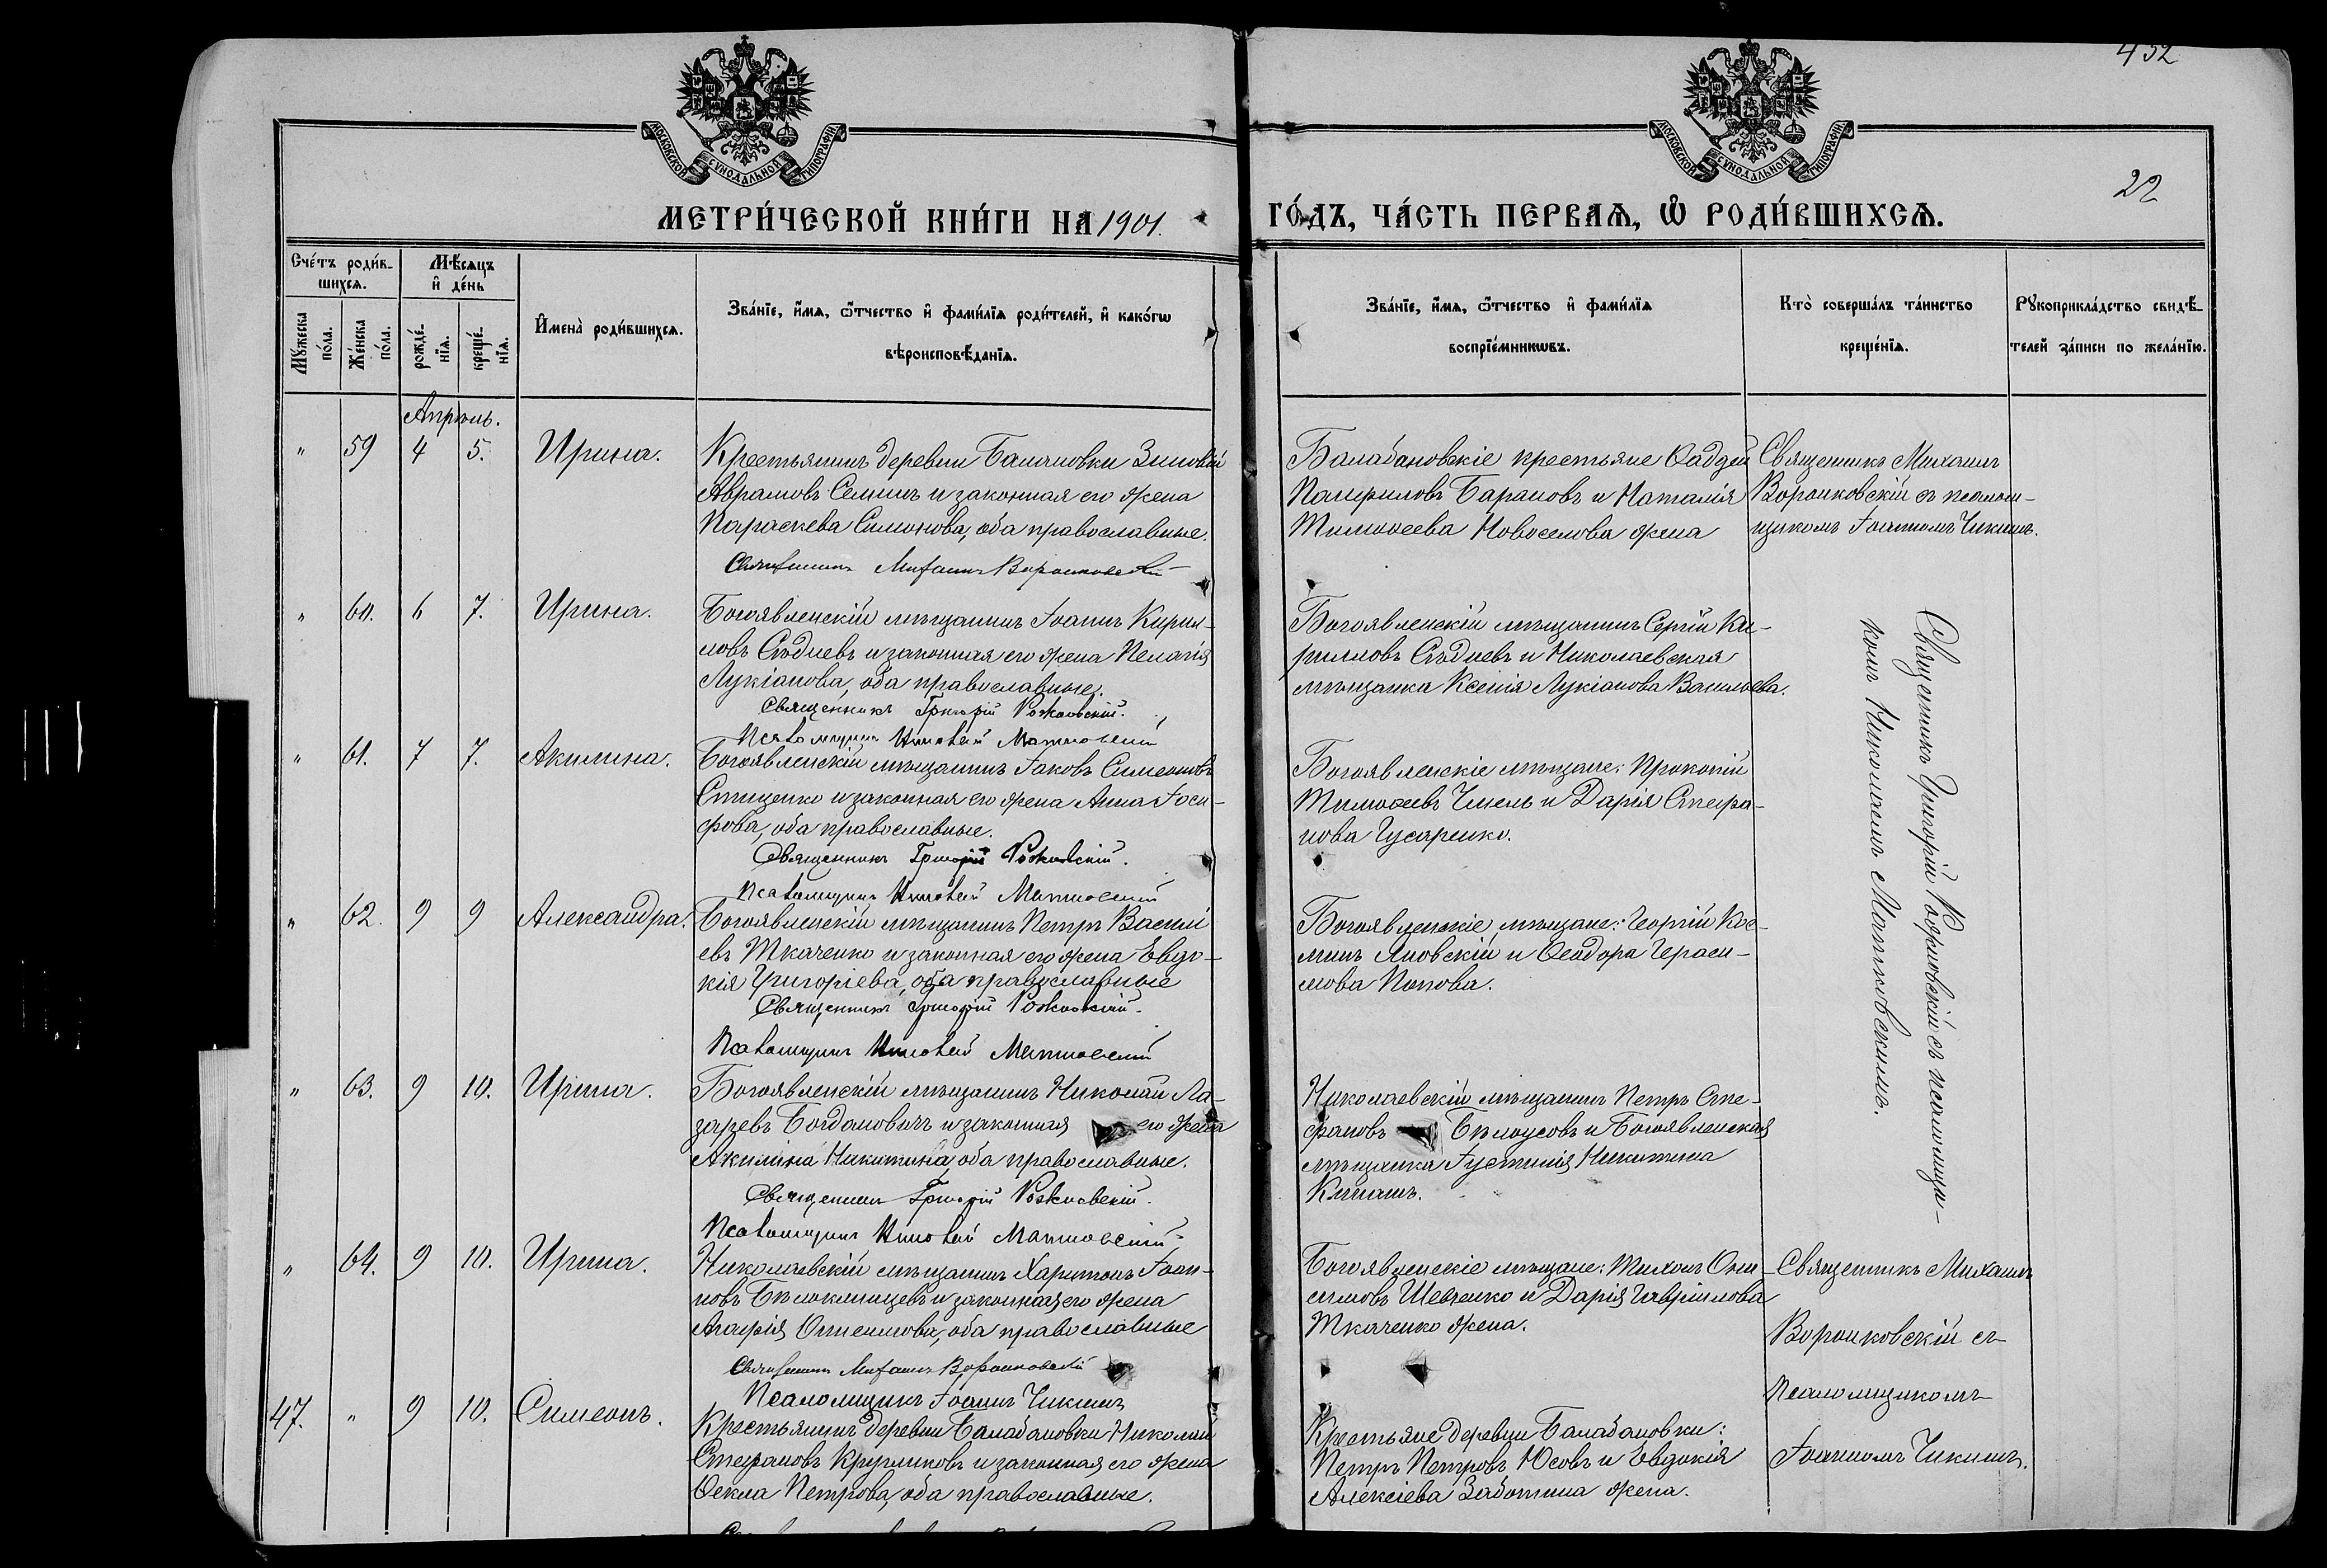 452
22
МОСКОВСКОЙ СѴНОДАЛЬНОЙ ТИПОГРАФІИ
МОСКОВСКОЙ СѴНОДАЛЬНОЙ ТИПОГРАФІИ
МЕТРИ́ЧЕСКОЙ КНИ́ГИ НА 1901. ГО́ДЪ, ЧА́СТЬ ПЕРВАѦ, Ѽ РОДИ́ВШИХСѦ.
Сче́тъ роди́в-
шихсѧ.
Мꙋ́жеска по́ла.
Же́нска по́ла.
Мѣ́сѧцъ и҆ де́нь
рожде́-нїѧ.
креще́-нїѧ.
И҆мена̀ роди́вшихсѧ.
Зва́нїе, и҆́мѧ, ѻ҆́тчество и҆ фамѝлїѧ роди́телей, и҆ како́гѡ
вѣроисповѣ́данїѧ.
Зва́нїе, и҆́мѧ, ѻ҆́тчество и҆ фамѝлїѧ
воспрїе́мникѡвъ.
Кто̀ соверша́лъ та́инство
креще́нїѧ.
Рꙋкоприкла́дство свидѣ́-
телей за́писи по жела́нїю.
Апрѣль.
" 59 4 5. Ирина.
Крестьянинъ деревни Балановки Зиновій
Аврамовъ Семинъ и законная его жена
Параскева Симонова, оба православные.
Священникъ Михаилъ Воронковскій
Балабановскіе крестьяне Ѳаддей
Памфиловъ Барановъ и Наталія
Тимоѳеева Новоселова жена
Священникъ Михаилъ
Воронковскій съ псаломщ-
щикомъ Іоанномъ Чикишъ.
" 60. 6 7. Ирина.
Богоявленскій мѣщанинъ Іоаннъ Кирил-
ловъ Сѣдневъ и законная его жена Пелагія
Лукіанова, оба православные.
Священникъ Григорій Рожновскій.
Псаломщикъ Николай Матковскій
Богоявленскій мѣщанинъ Сергій Ки-
рилловъ Сѣдневъ и Николаевская
мѣщанка Ксенія Лукіанова Васильева.
Священникъ Григорій Рожновскій съ псаломщи-
комъ Николаемъ Матковскимъ.
" 61. 7 7. Акилина.
Богоявленскій мѣщанинъ Іаковъ Симеоновъ
Стиценко и законная его жена Анна Іоси-
фова, оба православные.
Священникъ Григорій Рожновскій.
Псаломщикъ Николай Матковскій
Богоявленскіе мѣщане: Прокопій
Тимоѳеевъ Чмель и Дарія Стефа-
нова Гусаренко.
" 62. 9 9 Александра.
Богоявленскій мѣщанинъ Петръ Василі
евъ Ткаченко и законная его жена Евдо-
кія Григоріева, оба православные
Священникъ Григорій Рожновскій.
Псаломщикъ Николай Матковскій
Богоявленскіе мѣщане: Георгій Кос-
минъ Яновскій и Ѳеодора Гераси-
мова Попова.
" 63. 9 10. Ирина.
Богоявленскій мѣщанинъ Николай Ла-
заревъ Богдановичъ и законная его жена
Акилина Никитина, оба православные.
Священникъ Григорій Рожновскій.
Псаломщикъ Николай Матковскій
Николаевскій мѣщанинъ Петръ Сте-
фановъ Бѣлоусовъ и Богоявленская
мѣщанка Іустинія Никитина
" 64. 9 10. Ирина.
Николаевскій мѣщанинъ Харитонъ Іоан-
новъ Бѣлоклинцевъ и законная его жена
Агафія Онисимова, оба православные
Священникъ Михаилъ Воронковскій
Псаломщикъ Іоаннъ Чикишъ
Богоявленскіе мѣщане: Тихонъ Они-
симовъ Шевченко и Дарія Гавріилова
Ткаченко жена.
Священникъ Михаилъ
Воронковскій съ
псаломщикомъ
Іоанномъ Чикишъ.
47. " 9 10. Симеонъ.
Крестьянинъ деревни Балабановки Николай
Стефановъ Кругликовъ и законная его жена
Ѳекла Петрова, оба православные.
Крестьяне деревни Балабановки:
Петръ Петровъ Юсовъ и Евдокія
Алексіева Заботина жена.